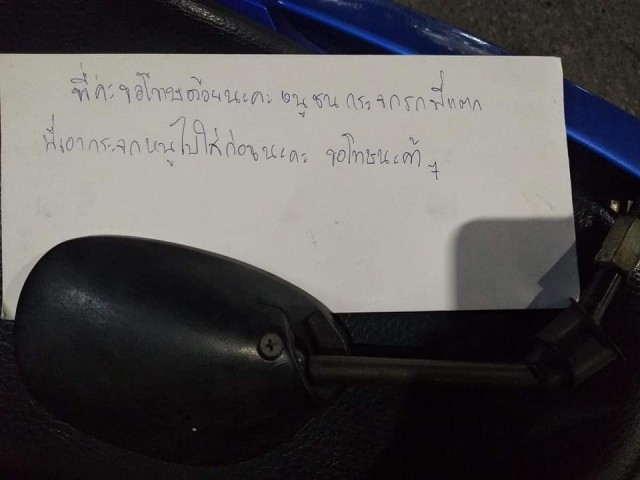 พี่ค่ะขอโทษด้วยนะคะ หนูชนกระจกรถพี่แตก
พี่เอากระจกหนูไปใส่ก่อนนะคะ ขอโทษนะค่ำ ๆ